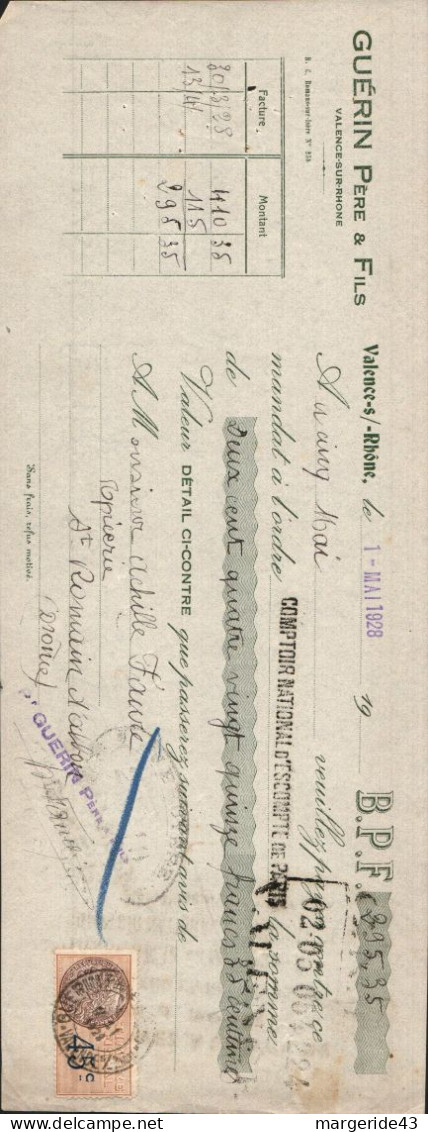 GUÉRIN PÈRE & FILS
VALENCE-SUR-RHONE
R. C. Romans-sur-Isère N°
Facture Montant
30/3/28 410 35
13/4/ 115
295 35
Valence-s/-Rhône, le 1-MAI 1928 19 B.P.F. 295,35
Au cinq Mai veuillez payer contre ce
mandat à l'ordre COMPTOIR NATIONAL D'ESCOMPTE DE PARIS la somme
de Deux cent quatre vingt quinze francs 35 centimes
Valeur DÉTAIL CI-CONTRE que passerez suivant avis de
A Monsieur Achille Favre
Epicerie
St Romain d'Albon
(Drôme)
Sans frais, refus motivé.
Pr GUERIN PÈRE
45c
margeride43